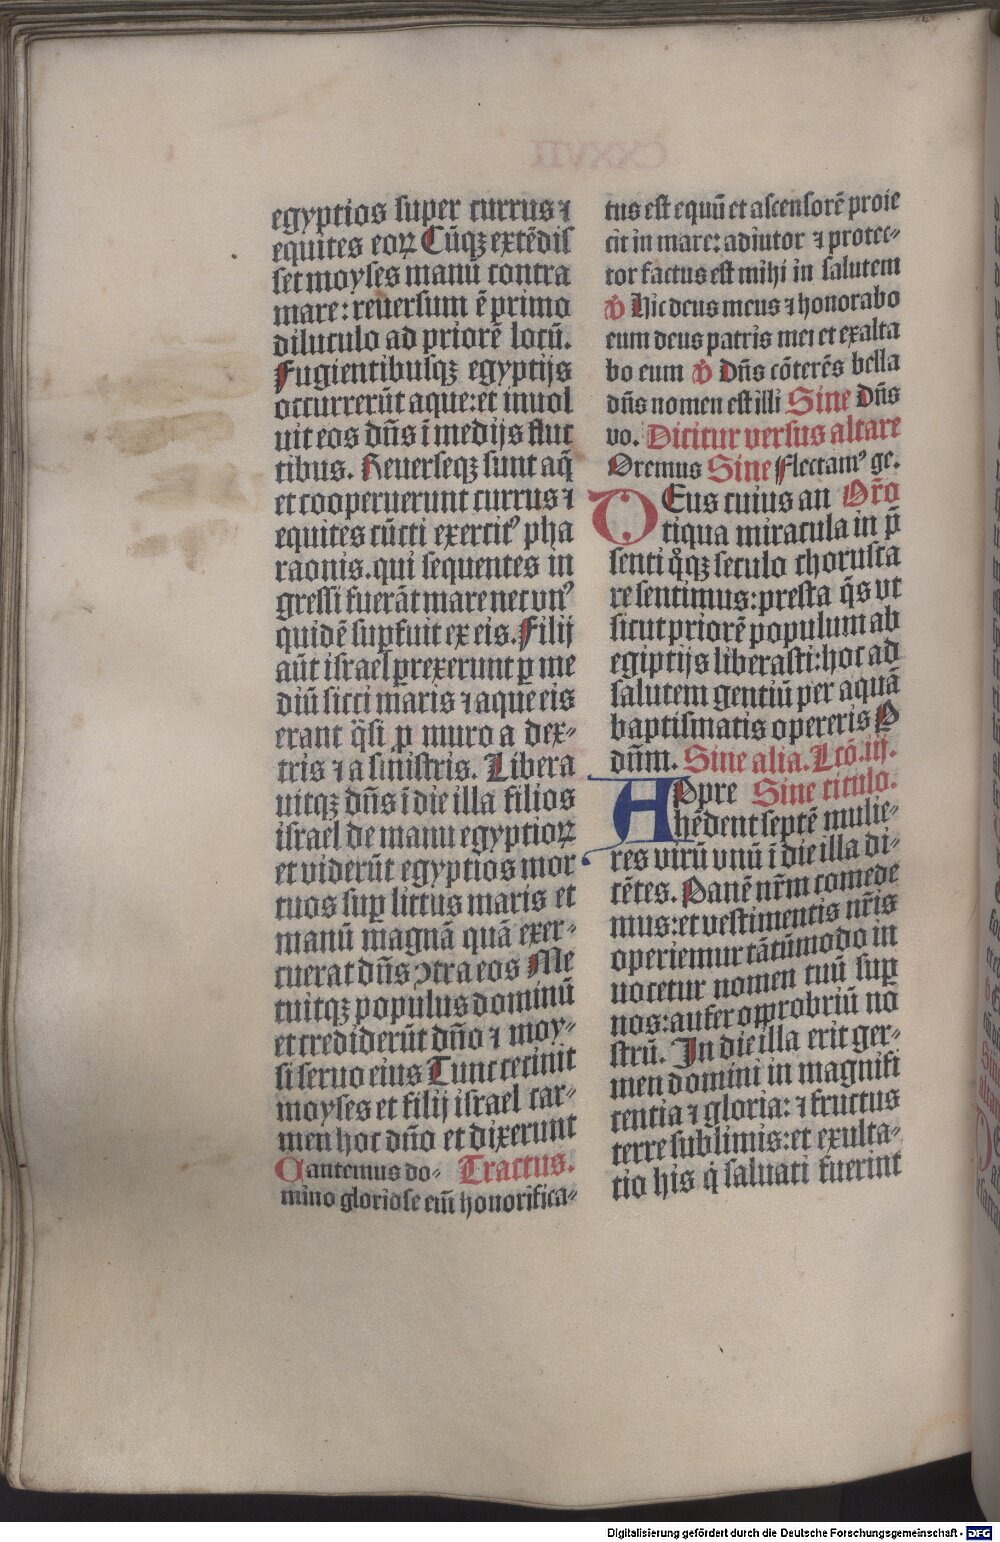 egyptios super currus ⁊
equites eoꝝ Cūqꝫ extēdiſ
set moyses manū contra
mare: reuersum ē primo
diluculo ad priorē locū.
Fugientibusqꝫ egyptijs
occurrerūt aque: et inuol
uit eos dn̄s ī medijs fluc
tibus. Reuerseqꝫ sunt aq̄
et cooperuerunt currus ⁊
equites cūcti exercitꝰ pha
raonis. qui sequentes in
gressi fuerāt mare nec vnꝰ
quidē suꝑfuit ex eis. Filij
aūt israel ꝑrexerunt ꝑ me
diū sicci maris ⁊ aque eis
erant q̄si ꝓ muro a dex-
tris ⁊ a sinistris. Libera
uitqꝫ dn̄s ī die illa filios
israel de manu egyptioꝝ
et viderūt egyptios mor
tuos suꝑ littus maris et
manū magnā quā exer-
cuerat dn̄s ↄtra eos Me
tuitqꝫ populus dominū
et crediderūt dn̄o ⁊ moy-
si seruo eius Tunc cecinit
moyses et filij israel car-
men hoc dn̄o et dixerunt
Cantemus do- Tractus.
mino gloriose em̄ honorifica-
tus est equū et ascensorē proie
cit in mare: adiutor ⁊ protec-
tor factus est mihi in salutem
℣ Hic deus meus ⁊ honorabo
eum deus patris mei et exalta
bo eum ℣ Dn̄s cōterēs bella
dn̄s nomen est illi Sine Dn̄s
vo. Dicitur versus altare
Oremus Sine Flectamꝰ ge.
DEus cuius an Or̄o
tiqua miracula in p̄
senti qͦqꝫ seculo chorusca
re sentimus: presta q̄s vt
sicut priorē populum ab
egiptijs liberasti: hoc ad
salutem gentiū per aquā
baptismatis opereris P
dūm. Sine alia. Lcō. iij.
APpre Sine titulo.
hēdent septē mulie-
res virū vnū ī die illa di-
cētes. Panē nr̄m comede
mus: et vestimentis nr̄is
operiemur tātūmodo in
uocetur nomen tuū suꝑ
nos: aufer opprobriū no
strū. In die illa erit ger-
men domini in magnifi
centia ⁊ gloria: ⁊ fructus
terre sublimis: et exulta-
tio his q̇ saluati fuerint
Digitalisierung gefördert durch die Deutsche Forschungsgemeinschaft - DFG